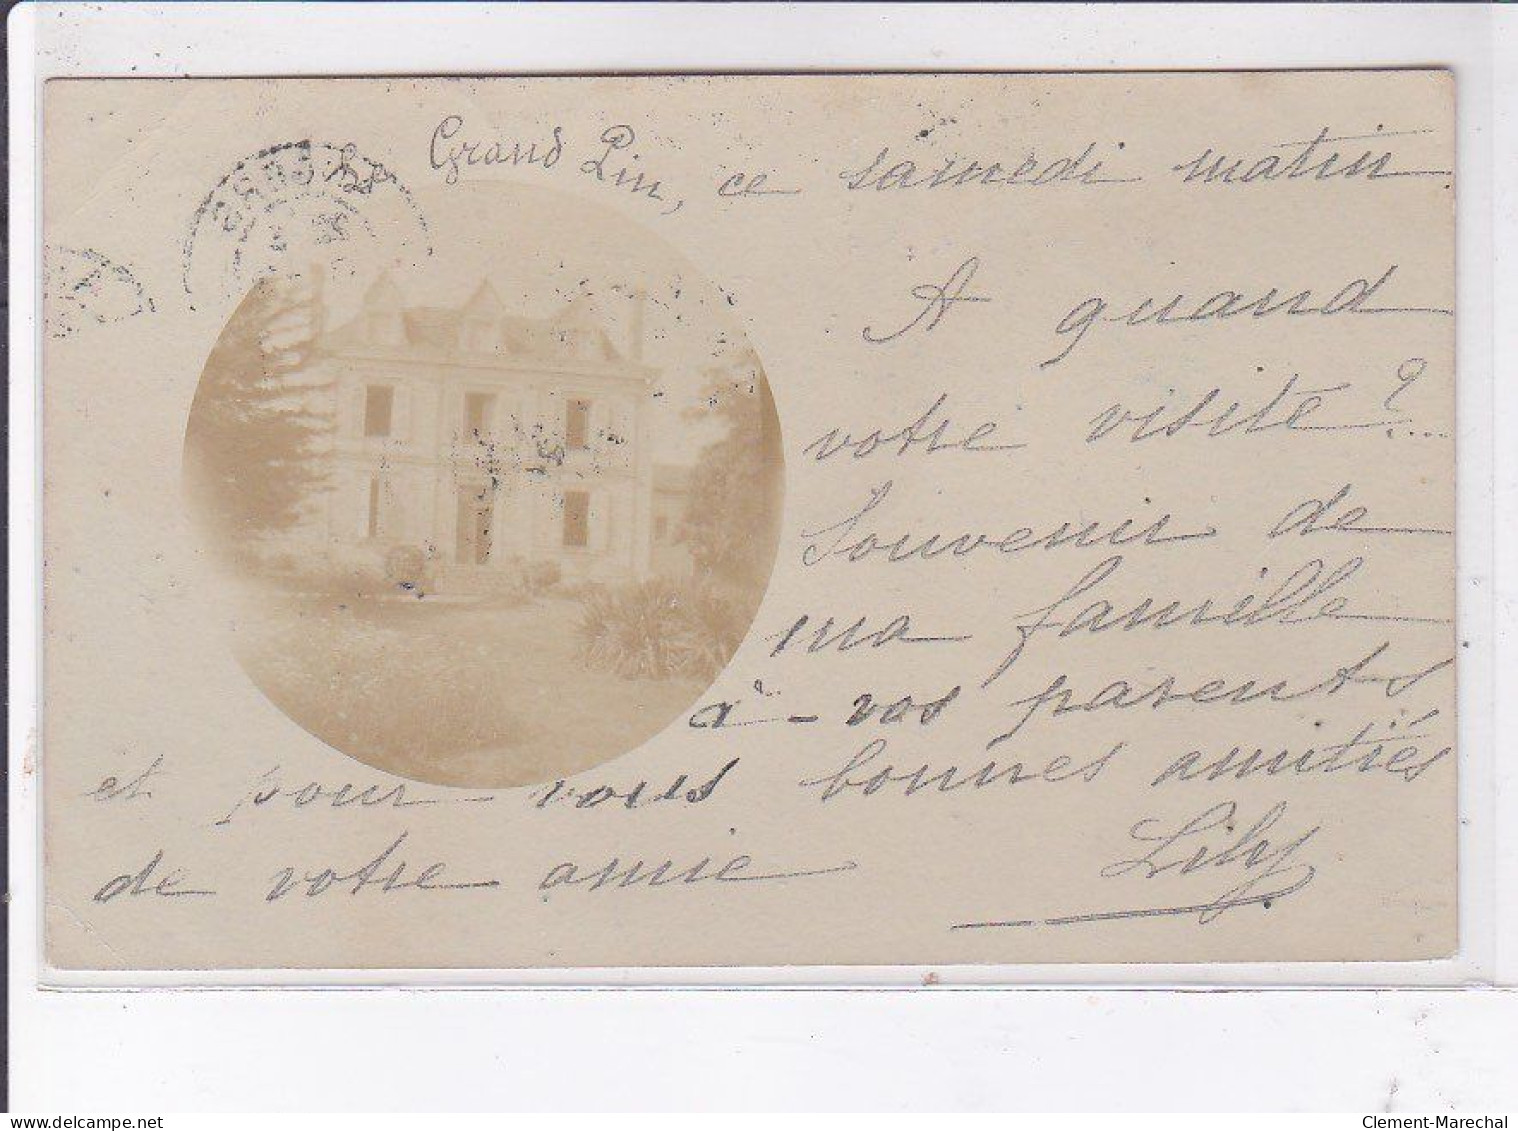 Le Grand Pin, ce samedi matin.
A quand
votre visite?...
Souvenir de
ma famille
à - vos parents
et pour - vous bonnes amitiés
de votre amie Lily
delcampe.net
Clement-Marechal